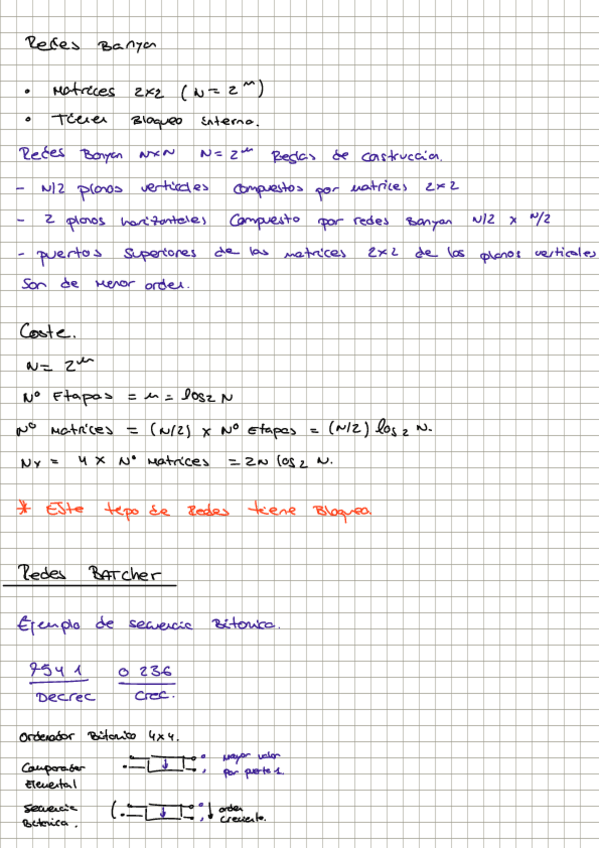 Redes Banyan
• Matrices 2x2 (N = 2^n)
• Tienen Bloqueo interno.
Redes Banyan NxN N = 2^n Reglas de Construccion.
- N/2 planos verticales compuestos por matrices 2x2
- 2 planos horizontales Compuesto por redes Banyan N/2 x N/2
- puertos superiores de las matrices 2x2 de los planos verticales
Son de menor orden.
Coste.
N = 2^n
Nº Etapas = n = log2 N
Nº matrices = (N/2) x Nº Etapas = (N/2) log2 N.
Nx = 4 x Nº matrices = 2N log2 N.
* Este tipo de Redes tiene Bloqueo
Redes BATCHER
Ejemplo de secuencia Bitonica.
7541 0236
Decrec Crec.
Ordenador Bitonico 4x4.
Comparador Elemental
Mayor valor
por puerto 1.
Secuencia
Bitonica.
orden
creciente.